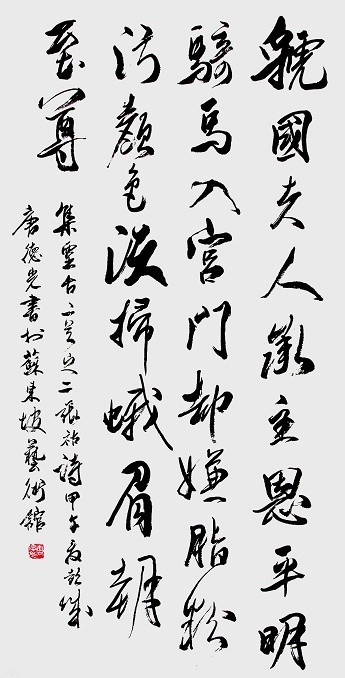 虢國夫人主恩平明
騎馬入宮門却嫌脂粉
污顏色淡掃蛾眉朝
至尊
集靈台二首之二張祜詩甲午夏
唐德光書於蘇東坡藝術館